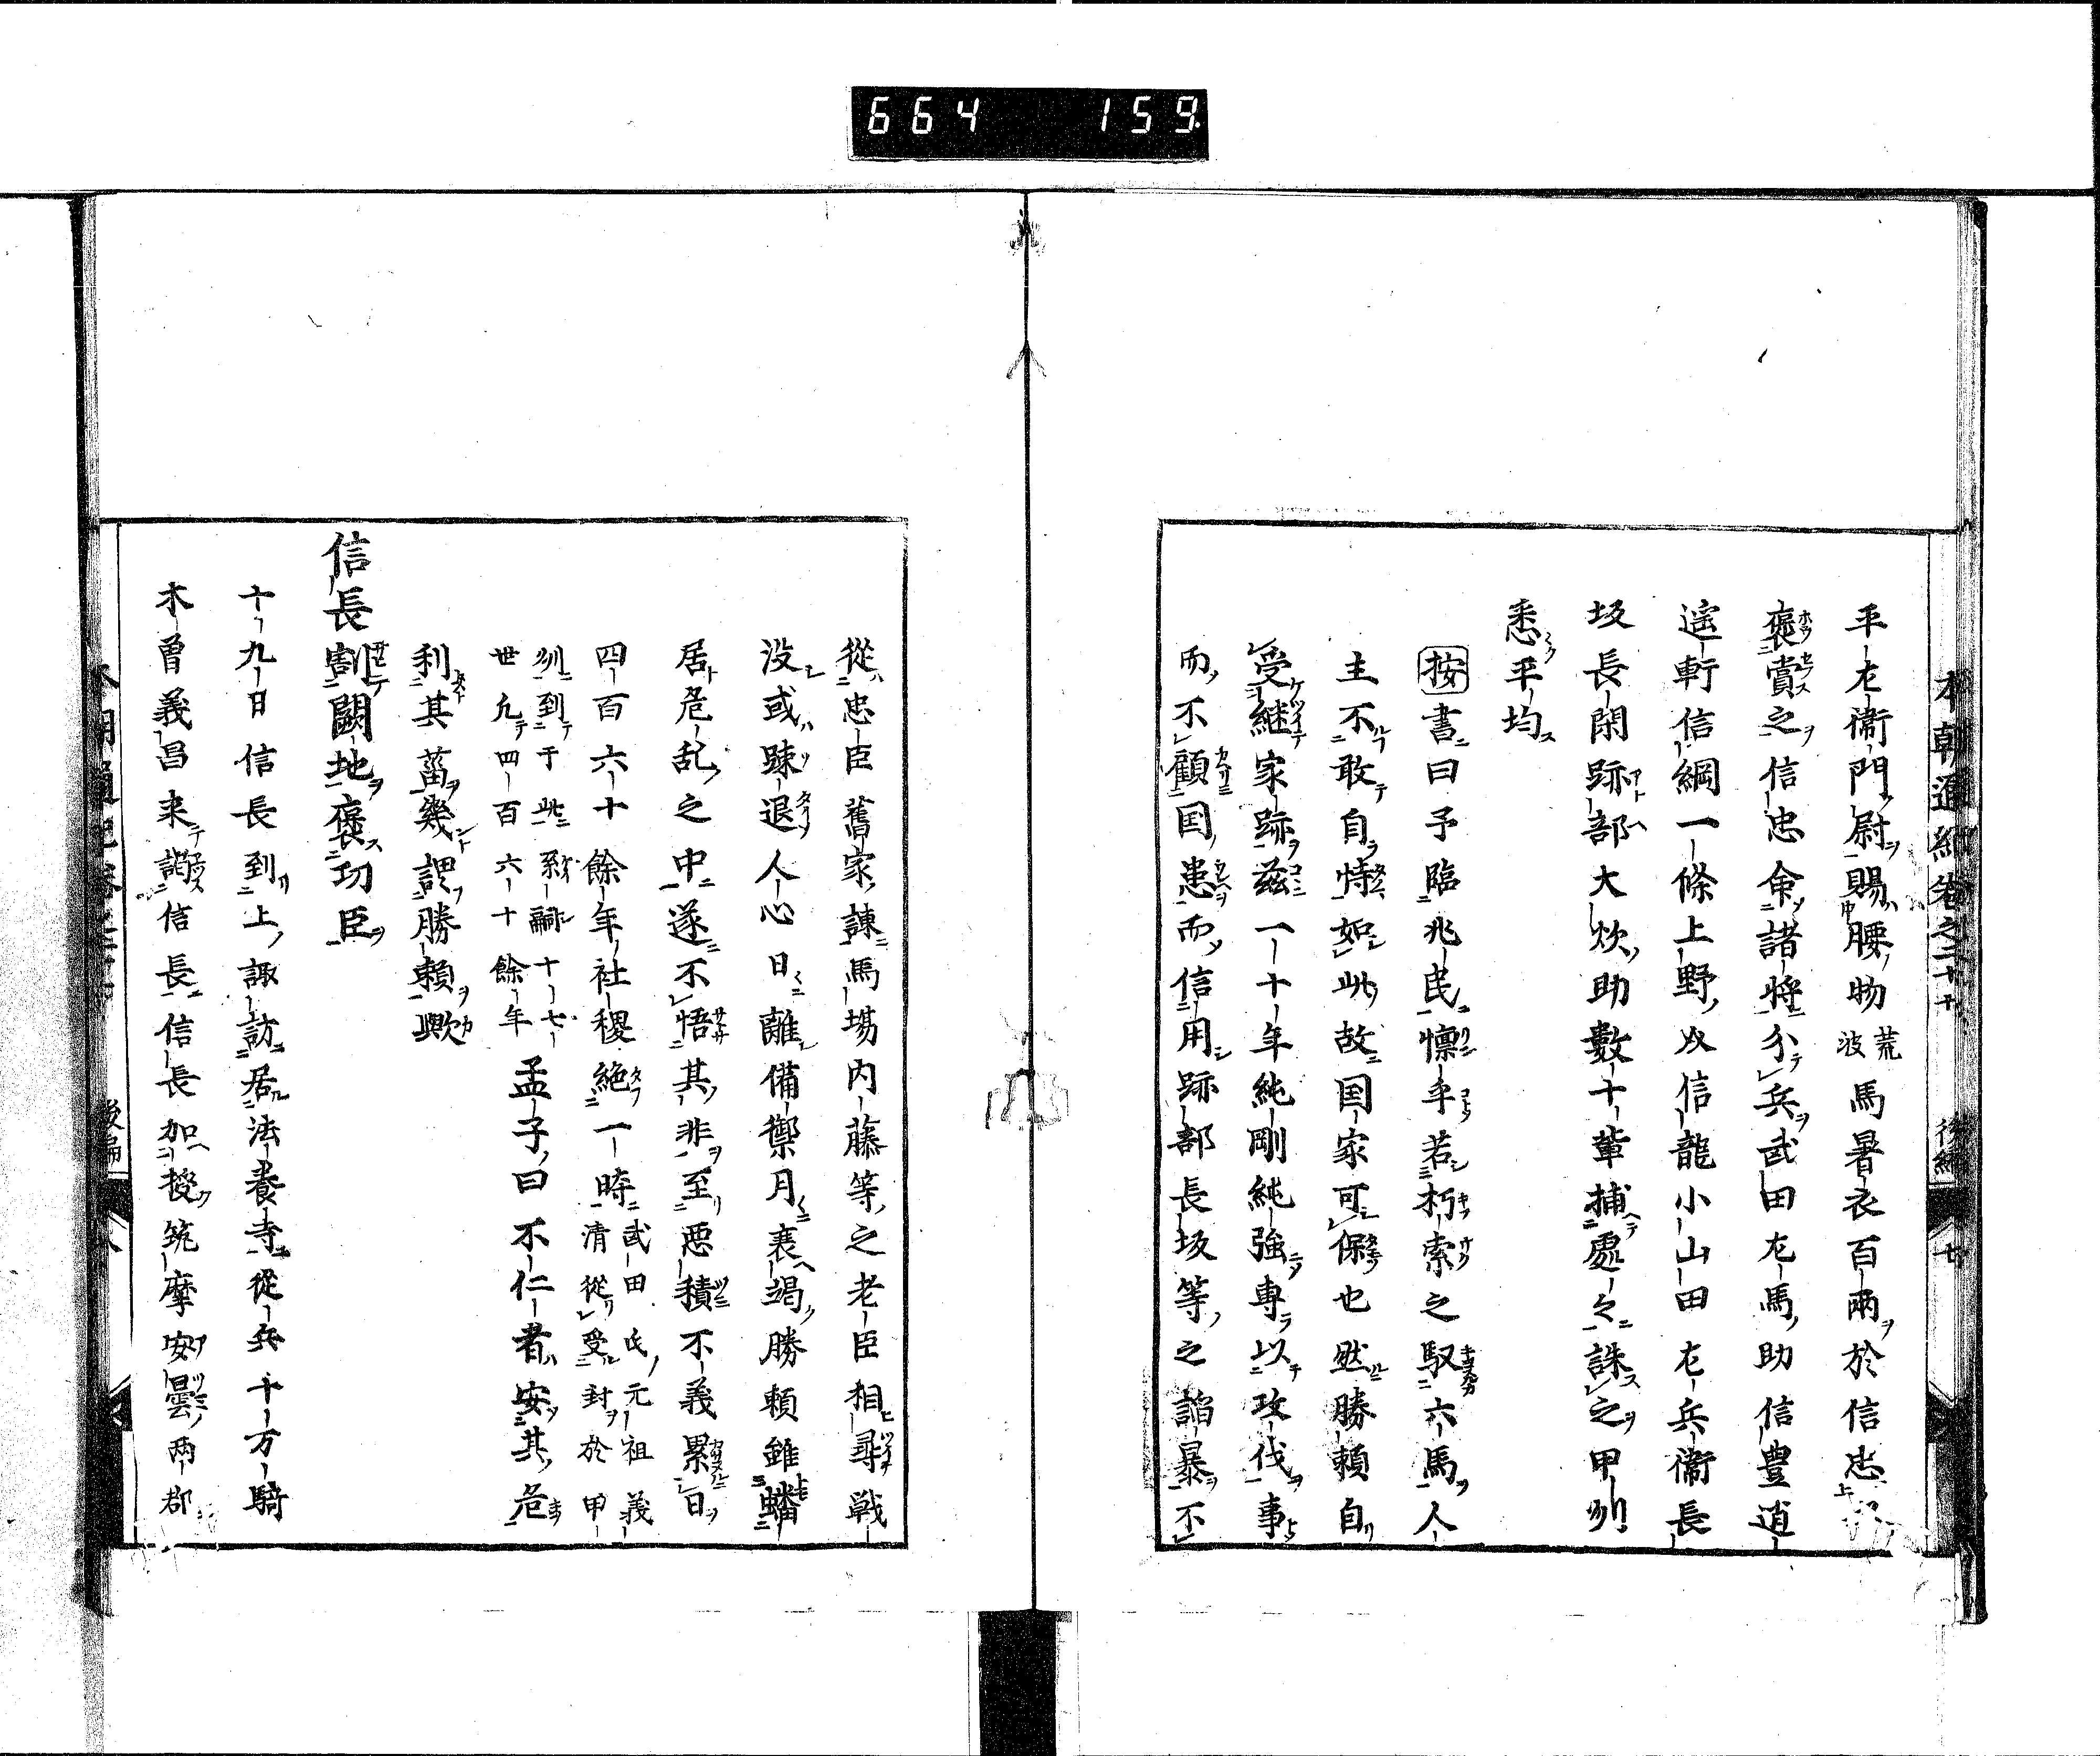 664 159
平左衞門尉賜腰物荒波馬暑衣百兩於信忠
褒賞之信忠命諸將分兵武田左馬助信豊逍
遥軒信綱一條上野从信龍小山田左兵衞長
坂長閑跡部大炊助數十輩捕處々誅之甲州
悉平均
按書曰予臨兆民懍乎若朽索之馭六馬人
主不敢自恃如此故国家可保也然勝頼自
受継家跡玆一十年純剛純強專以攻伐事
而不顧国患而信用跡部長坂等之諂暴不
從忠臣舊家諫馬場内藤等之老臣相尋戦
没或踈退人心日離備禦月衰竭勝頼雖蟠
居危乱之中遂不悟其非至惡積不義累日
四百六十餘年社稷絶一時武田氏元祖義清從受封於甲
州到于此系嗣十七世九四百六十餘年孟子曰不仁者安其危
利其葘幾謂勝頼歟
信長割闢地褒功臣
十九日信長到上諏訪居法養寺從兵十万騎
木曽義昌来謁信長信長加授筑摩安曇両郡
本朝通紀卷之二十 後編 七